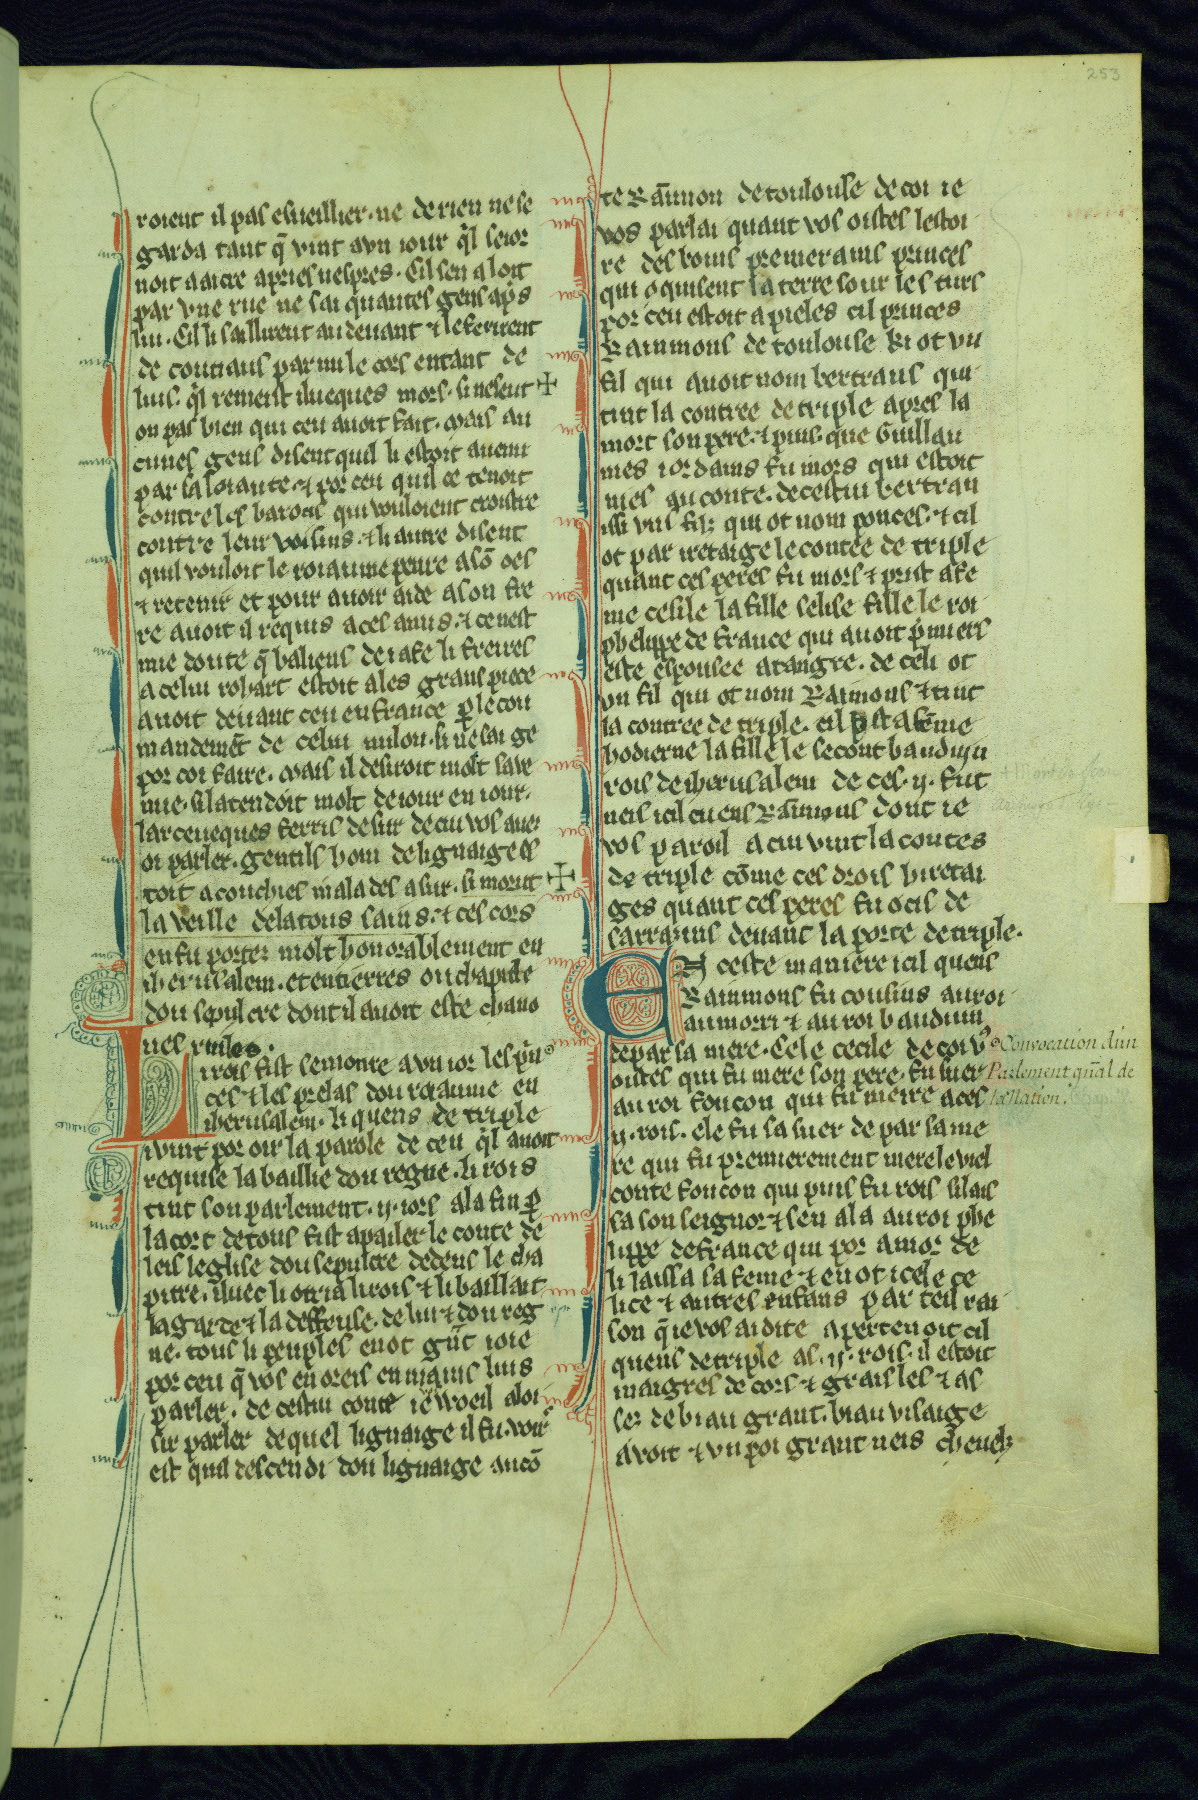 253
roient il pas esueillier. ne de rien ne se
garda tant q̃ vint a vn iour q̃l seior
noit a acre apries vespres. Cil sen aloit
par vne rue ne sai quantes gens ap̃s
lui. Cil li saillirent au deuant ⁊ le ferirent
de coutiaus parmi le cors en tant de
luis. q̃l remest ilueques mors. si ne seut
on pas bien qui ceu auoit fait. mais au
cunes gens disent quil li estoit auenu
par sa loiaute. ⁊ por ceu quil ce tenoit
contre les barons qui vouloient croistre
contre leur voisins. ⁊ li autre disent
quil vouloit le roiaume penre a sõ oes
⁊ retenir et pour auoir aide a son fre
re auoit il requis a ces amis. ⁊ ce nest
mie doute q̃ baliens de iafe li freires
a celui robart estoit ales grans piece
auoit deuant ceu en france ꝑ le con
mandemẽt de celui milon. si ne sai ge
por coi faire. mais il desiroit molt sa ve
nue. si latendoit molt de iour en iour.
larceueques ferris de sur de cui vos aues
oi parler. gentils hom de lignaige es
toit acouchies malades a sur. si morut
la veille de la tous sains. ⁊ ces cors
en fu porter molt honorablement en
iherusalem. et entierres ou chapitle
dou sepulcre dont il auoit este chano
nes rieules.
Li rois fist semonre a vn ior les p̃n
ces ⁊ les prelas dou roiaume en
iherusalem. li quens de triple
i vint por oir la parole de ceu q̃l auoit
requise la baillie dou regne. li rois
tint son parlement. ij. iors a la fin ꝑ
la cort de tous fist apailer le conte de
leis leglise dou sepulcre dedens le cha
pitre. iluec li otria li rois ⁊ li bailla it
la garde ⁊ la deffense. de lui ⁊ dou reg
ne. tous li peuples en ot grãt ioie
por ceu q̃ vos en oreis en mains luis
parler. de cestui conte ie woeil a loi
sir parler de quel lignaige il fu. voirs
est quil descendi dou lignaige ancõ
te Raimon de toulouse de coi ie
vos parlai quant vos oistes lestoi
re des bons premerains princes
qui conquisent la terre sour les turs
por ceu estoit apieles cil princes
Raimmons de toulouse ki ot vn
fil qui auoit nom bertrans qui
tint la contree de triple apres la
mort son pere. ⁊ puis que Guillau
mes iordains fu mors qui estoit
nies au conte. de cestui bertran
issi vns filz qui ot nom ponces. ⁊ cil
ot par iretaige le contee de triple
quant ces peres fu mors ⁊ prist a fe
me cesile la fille fille le roi
phelippe de france qui auoit p̃miers
este espousee a tangre. de celi ot
vn fil qui ot nom Raimons ⁊ tint
la contree de triple. cil p̃st a feme
hodierne la fille le secont bauduin
rois de iherusalem de ces .ij. fut
neis icil cuens Raimmons dont ie
vos paroil a cui vint la contes
de triple cõme ces drois hiretai
ges quant ces peres fu ocis de
sarrazins deuant la porte de triple.
En ceste maniere icil quens
Raimmons fu cousins au roi
aumorri ⁊ au roi bauduin
de par sa mere. Cele cecile de coi v9
oistes qui fu mere son pere. fu suer
au roi foucon qui fu meire a ces
ij. rois. ele fu sa suer de par sa me
re qui fu premierement mere le viel
conte foucon qui puis fu rois si lais
sa son seignor ⁊ sen ala au roi phe
lippe de france qui por amor de
li laissa sa feme ⁊ en ot icele ce
lice ⁊ autres enfans par teil rai
son q̃ ie vos ai dite apertenoit cil
quens de triple as .ij. rois. il estoit
maigres de cors ⁊ grailles ⁊ as
sez de biau grant. biau visaige
avoit ⁊ vn poi grant neis cheuelz
Convocation d'un
Parlement gnãl de
la Nation.